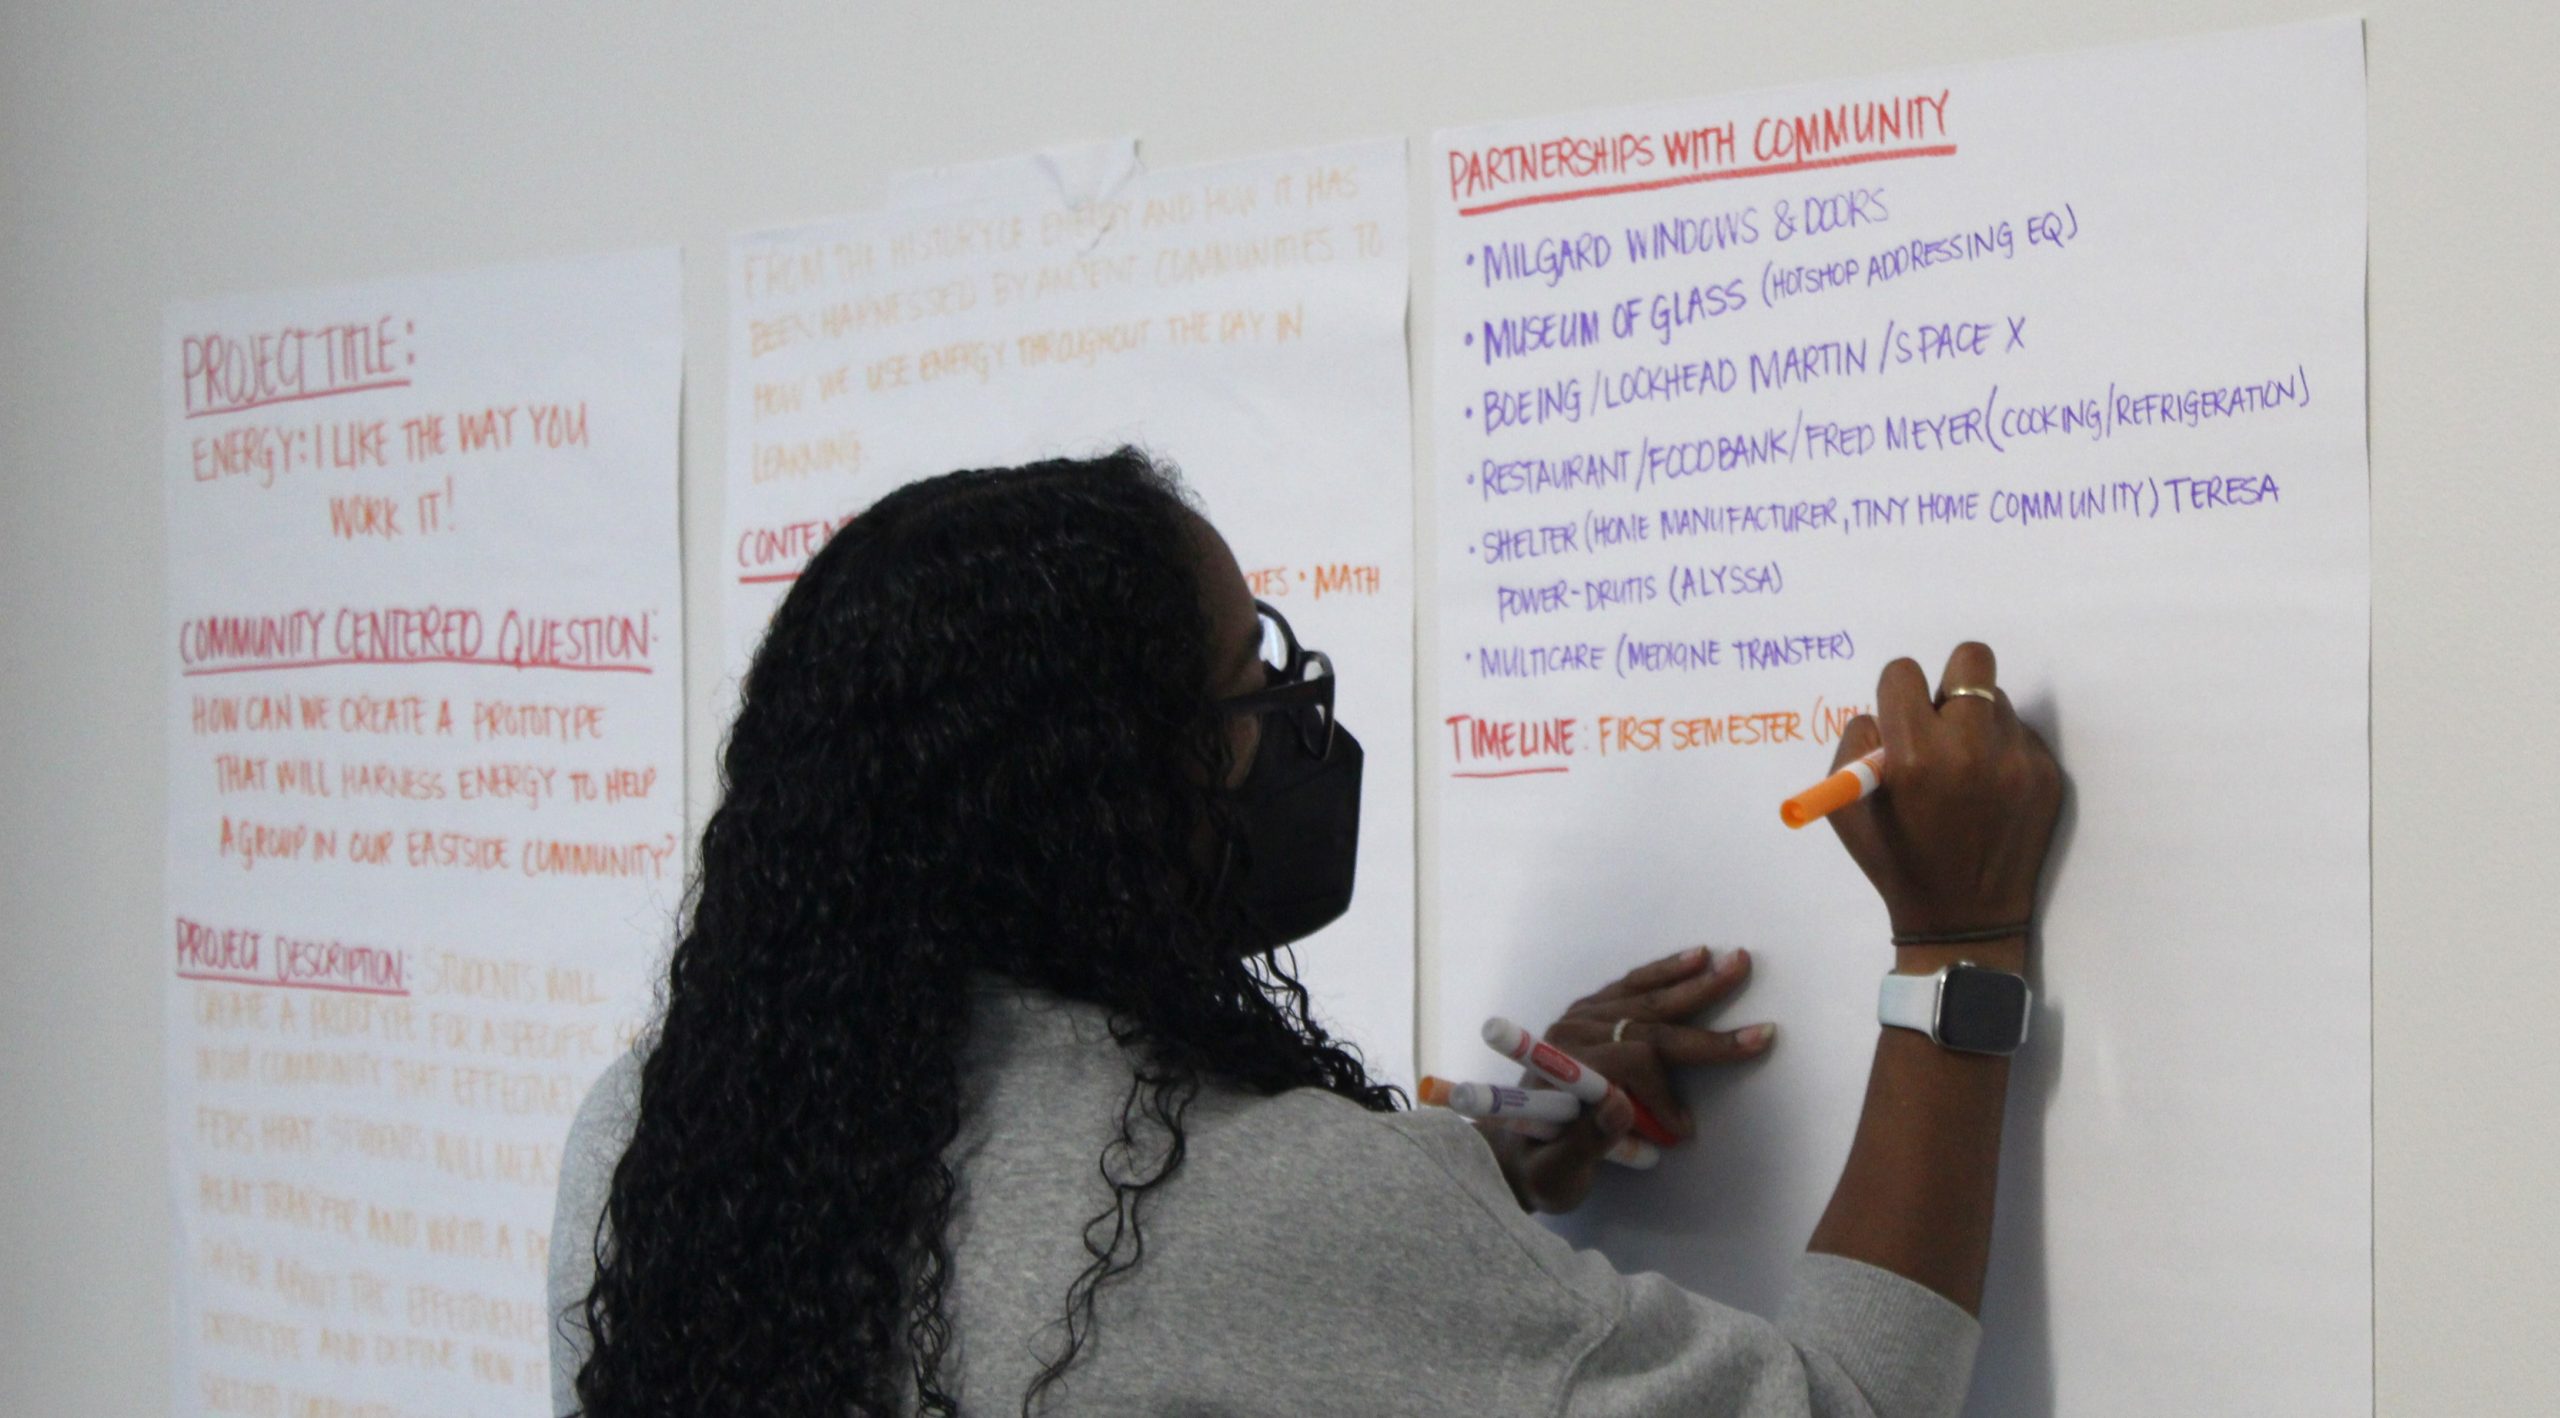 PROJECT TITLE:
ENERGY: I LIKE THE WAY YOU
WORK IT!
COMMUNITY CENTERED QUESTION:
HOW CAN WE CREATE A PROTOTYPE
THAT WILL HARNESS ENERGY TO HELP
A GROUP IN OUR EASTSIDE COMMUNITY?
PROJECT DESCRIPTION: STUDENTS WILL
CREATE A PROTOTYPE FOR A SPECIFIC
IN OUR COMMUNITY THAT
FERS HEAT. STUDENTS WILL
HEAT TRANSFER AND WRITE A
PAPER ABOUT THE
PROTOTYPE AND DEFINE HOW IT
FROM THE HISTORY OF ENERGY AND HOW IT HAS
BEEN HARNESSED BY ANCIENT COMMUNITIES TO
HOW WE USE ENERGY THROUGHOUT THE DAY IN
LEARNING.
CONTE
DIES • MATH
PARTNERSHIPS WITH COMMUNITY
• MILGARD WINDOWS & DOORS
• MUSEUM OF GLASS (HOTSHOP ADDRESSING EQ)
• BOEING/LOCKHEAD MARTIN/SPACE X
• RESTAURANT/FOODBANK/FRED MEYER (COOKING/REFRIGERATION)
• SHELTER (HOME MANUFACTURER, TINY HOME COMMUNITY) TERESA
POWER-DRUTIS (ALYSSA)
• MULTICARE (MEDICINE TRANSFER)
TIMELINE: FIRST SEMESTER (NOV